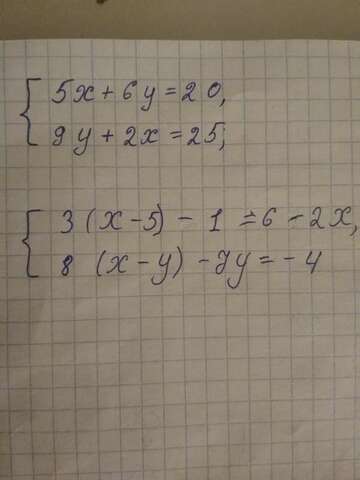 5x + 6y = 20,
9y + 2x = 25;
3 (x - 5) - 1 = 6 - 2x,
8 (x - y) - 7y = - 4